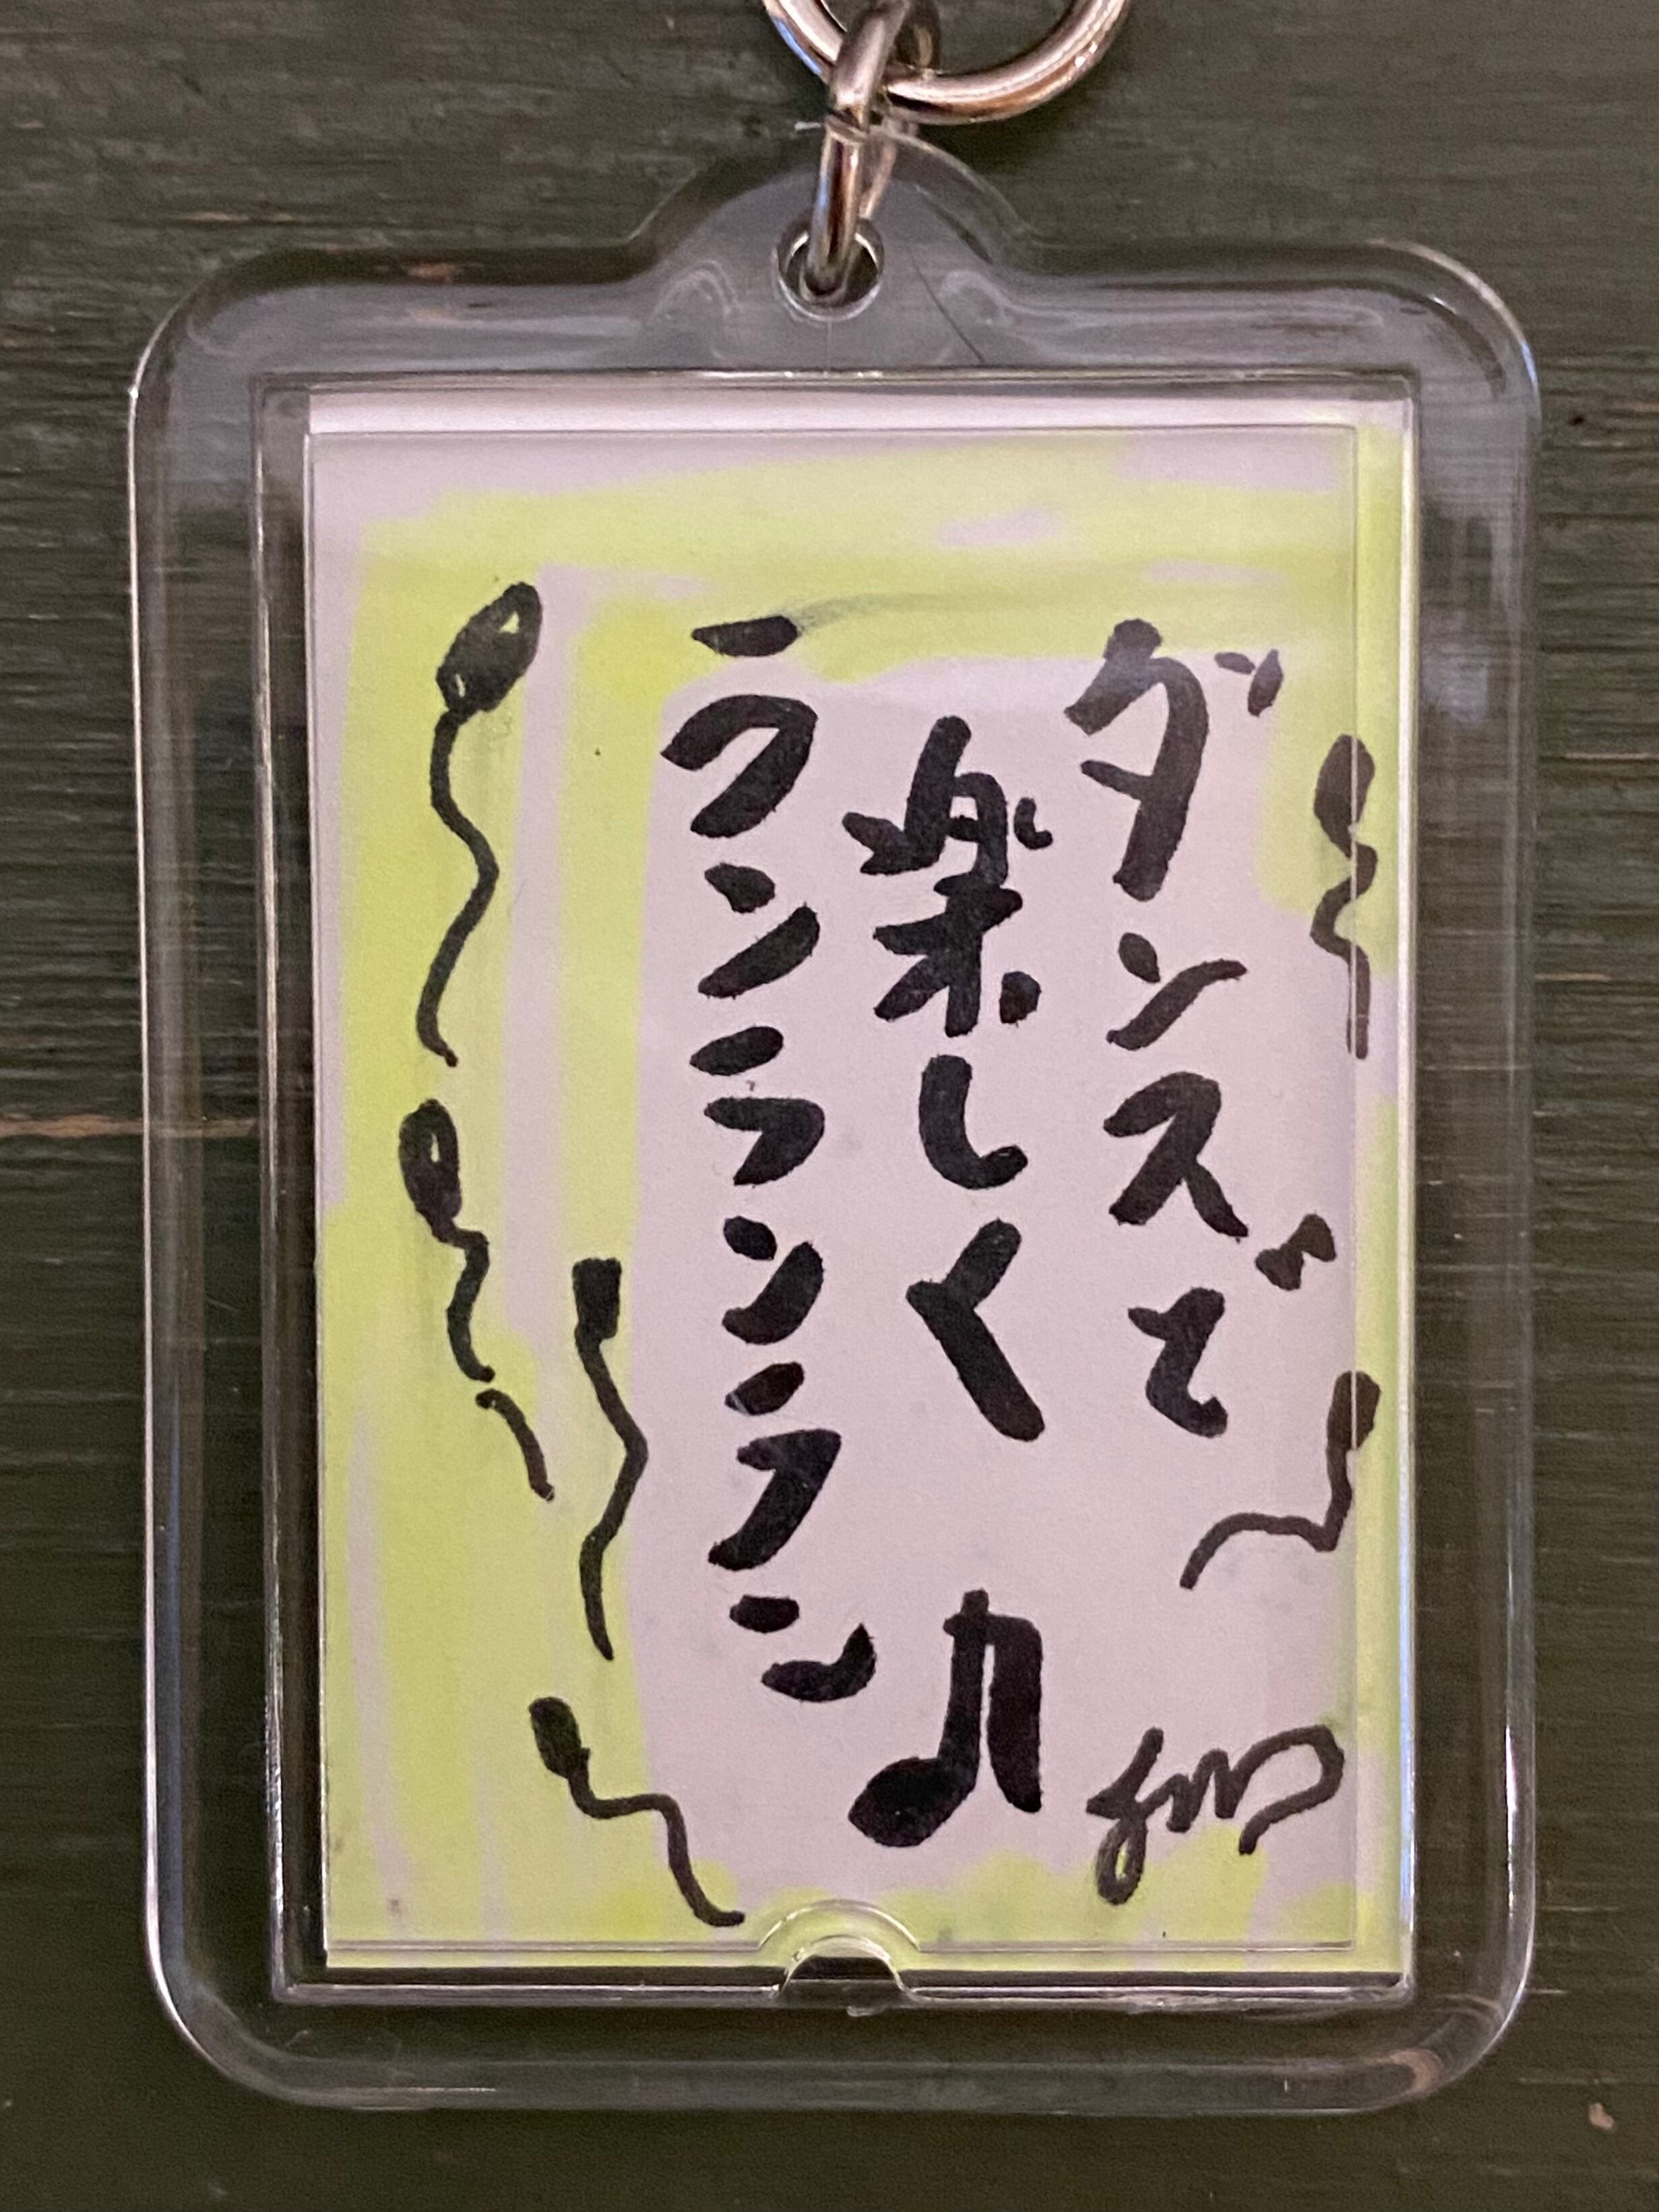 ダンスで
楽しく♪
ランランラン